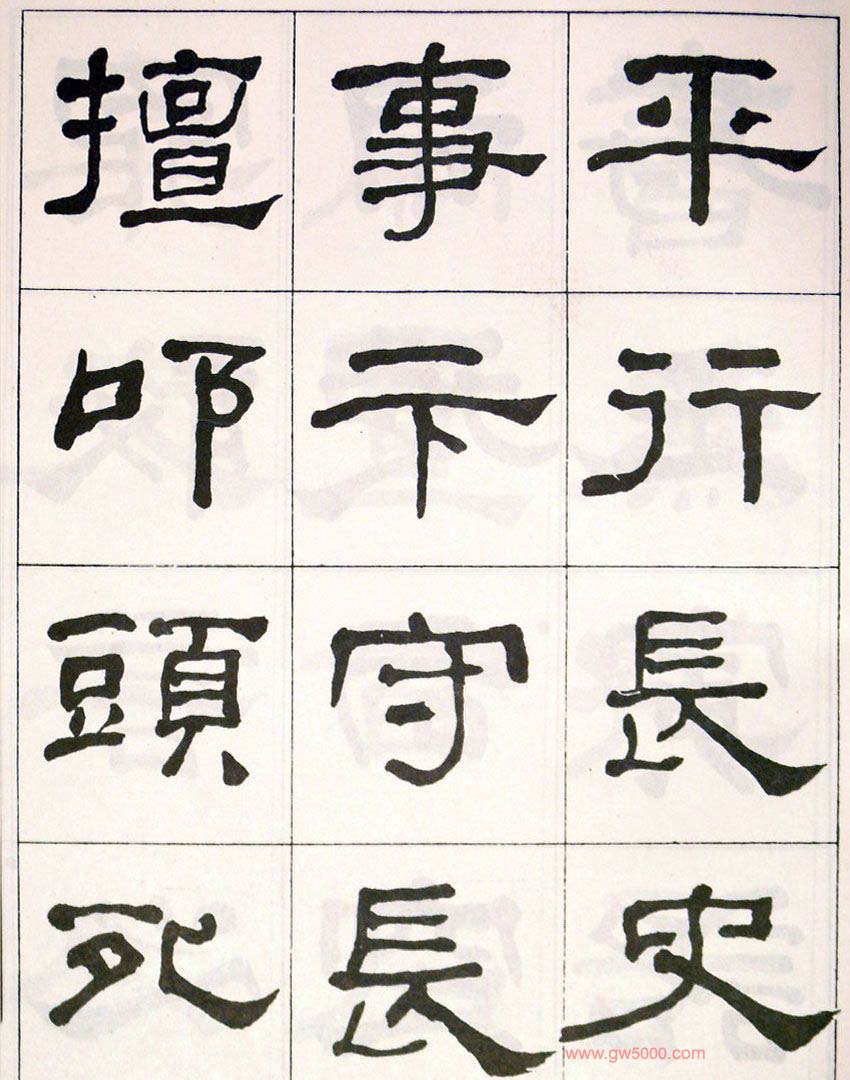 平行長史
事卞守長
擅叩頭死
www.gw5000.com